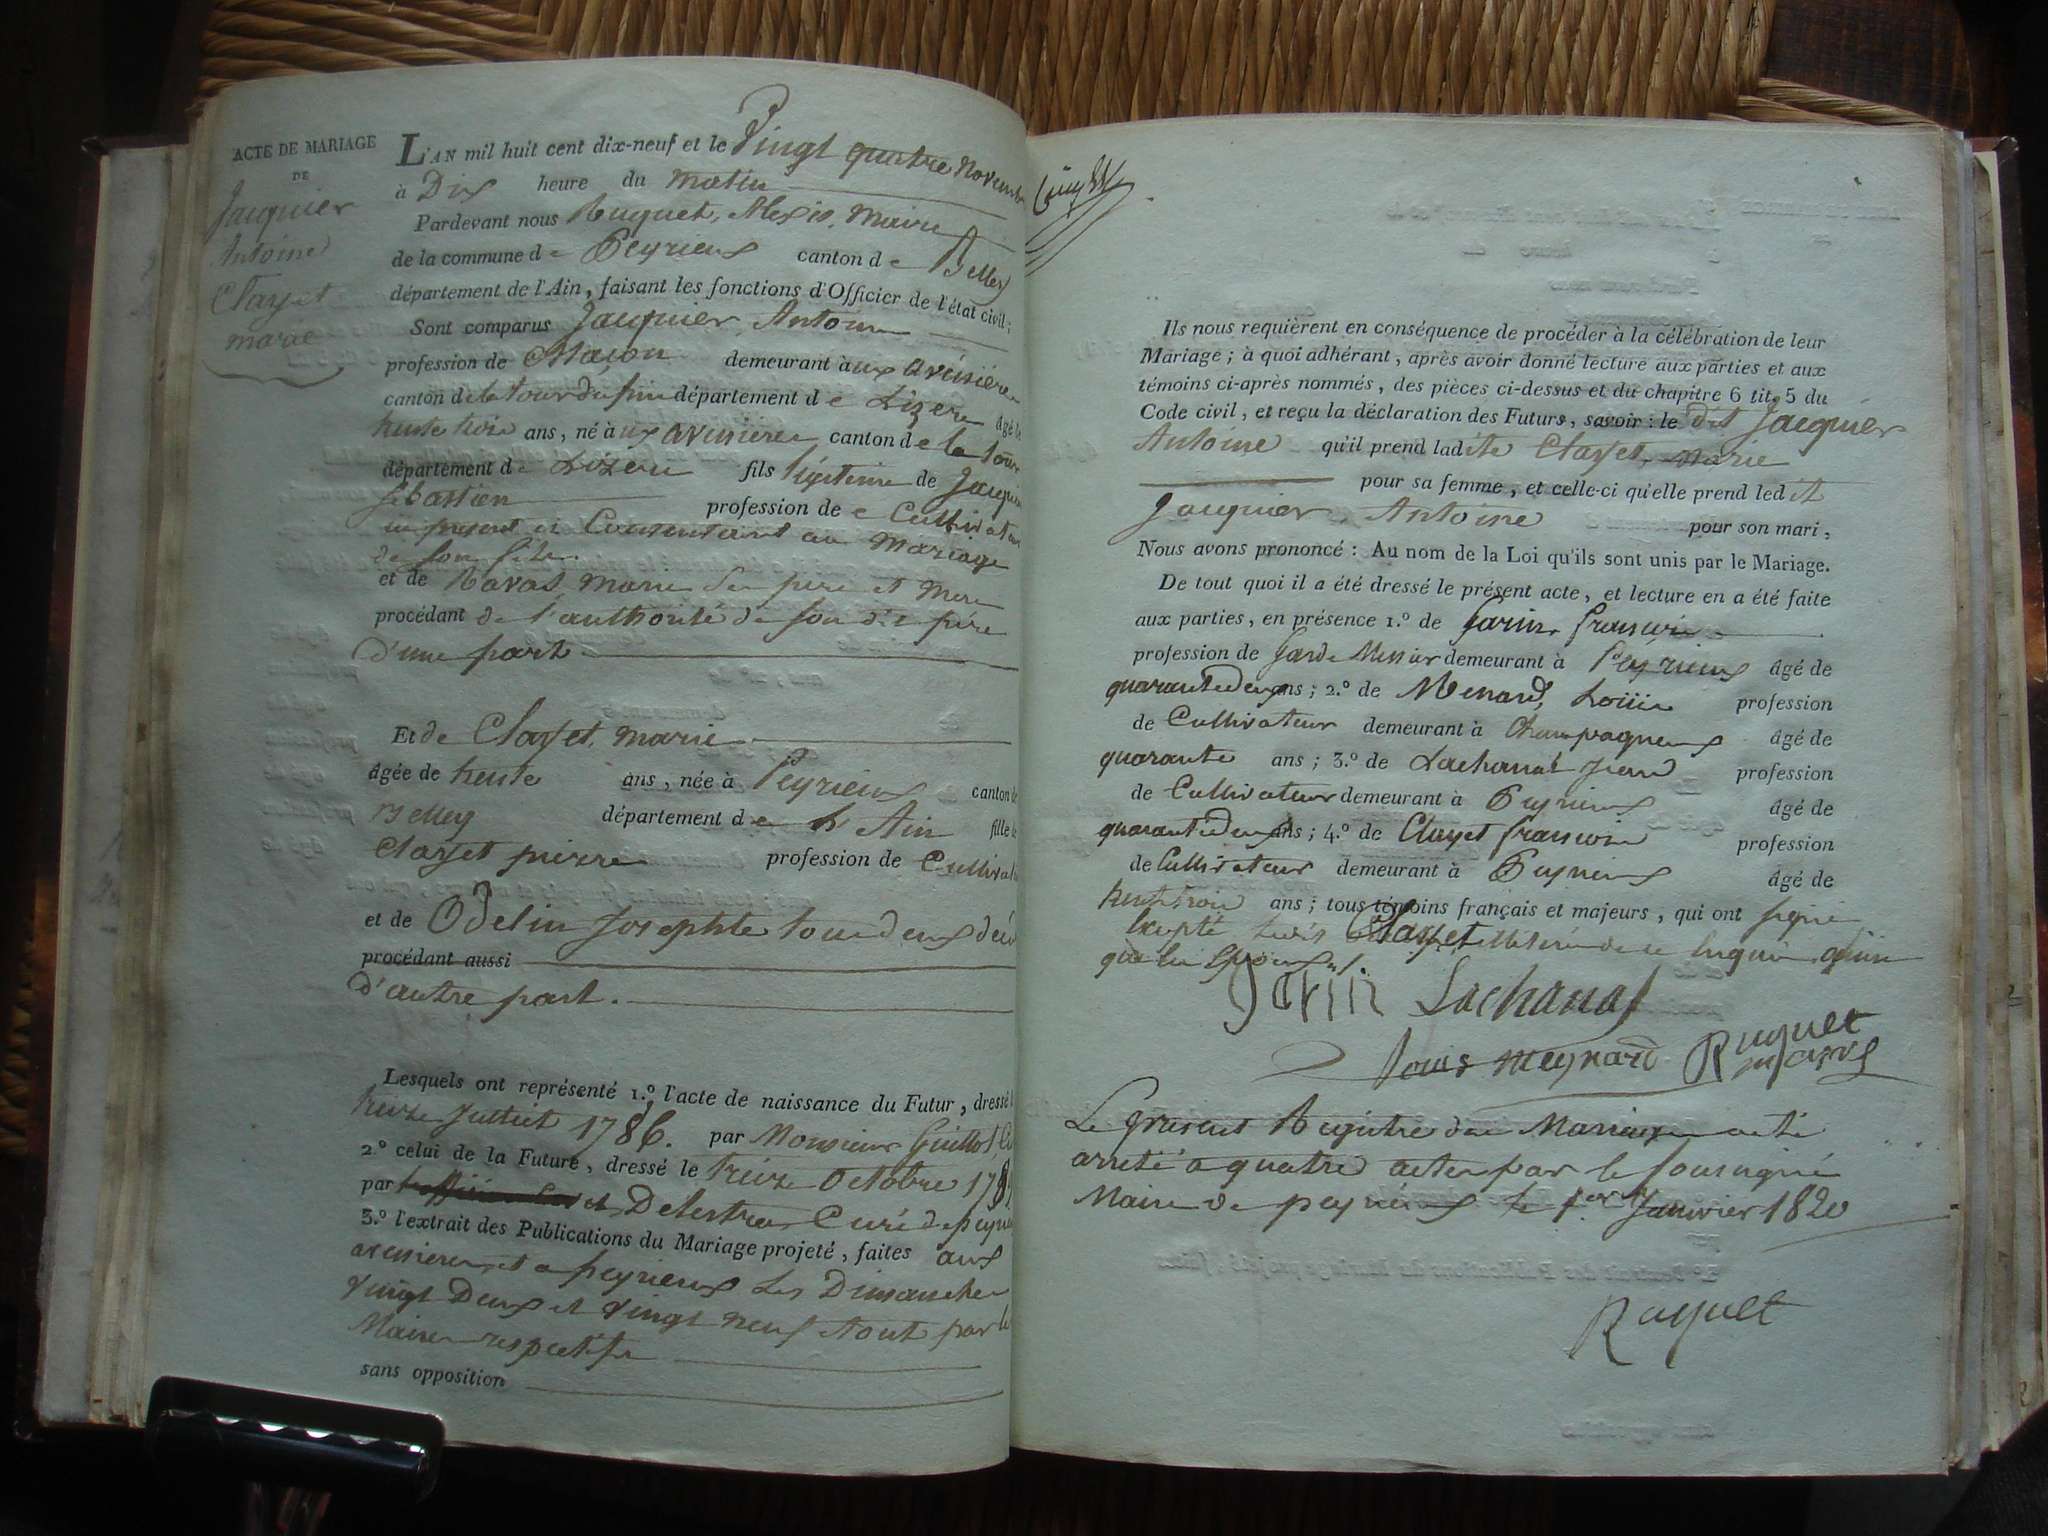 ACTE DE MARIAGE
DE
Jacquier
Antoine
Clayet
marie
L'AN mil huit cent dix-neuf et le Vingt quatre Novembre
à Dix heure du matin
Pardevant nous Ruguet, Alexis, Maire
de la commune de Peyrieux canton de Belley
département de l'Ain, faisant les fonctions d'Officier de l'état civil;
Sont comparus Jacquier Antoine
profession de Maçon demeurant à ux avenieres
canton de la tour du pin département de Lizere âgé de
trente trois ans, né à ux avenieres canton de la tour
département de Lizere fils légitime de Jacquier
Sebastien profession de Cultivateur
ici present et Consentant au Mariage
de son fils
et de Ravas, marie ses pere et mere
procédant de l'authorité de son dit père
d'une part
Et de Clayet, marie
âgée de trente ans, née à Peyrieux canton de
Belley département de L'Ain fille de
Clayet pierre profession de Cultivat
et de Odelin Josephte tous deux décé
procédant aussi
d'autre part.
Lesquels ont représenté 1.º l'acte de naissance du Futur, dressé l
treize Juillet 1786. par Monsieur Guillot
2.º celui de la Future, dressé le treize Octobre 178
par Delestra Curé de peyri
3.º l'extrait des Publications du Mariage projeté, faites aux
avenieres et a peyrieux Les Dimanches
Vingt Deux et Vingt neuf tout par le
Maires respectifs
sans opposition
Ils nous requièrent en conséquence de procéder à la célébration de leur
Mariage; à quoi adhérant, après avoir donné lecture aux parties et aux
témoins ci-après nommés, des pièces ci-dessus et du chapitre 6 tit. 5 du
Code civil, et reçu la déclaration des Futurs, savoir: le dit Jacquier
Antoine qu'il prend ladite Clayet, marie
pour sa femme, et celle-ci qu'elle prend ledit
Jacquier, Antoine pour son mari,
Nous avons prononcé: Au nom de la Loi qu'ils sont unis par le Mariage.
De tout quoi il a été dressé le présent acte, et lecture en a été faite
aux parties, en présence 1.º de Garin françois
profession de Garde Messier demeurant à Peyrieux âgé de
quarantedeux ans; 2.º de Menard, Louis profession
de Cultivateur demeurant à Champagneux âgé de
quarante ans; 3.º de Lachanat Jean profession
de Cultivateur demeurant à Peyrieux âgé de
quarantedeux ans; 4.º de Clayet françois profession
de Cultivateur demeurant à Peyrieux âgé de
trentetrois ans; tous témoins français et majeurs, qui ont signé
Excepté Clayet de ce enquis ainsi
que les Epoux
Garin Lachanat
Louis meynard Ruguet
maire
Le present Registre des Mariages a été
arreté a quatre actes par le soussigné
Maire de peyrieux le 1.er Janvier 1820
Ruguet